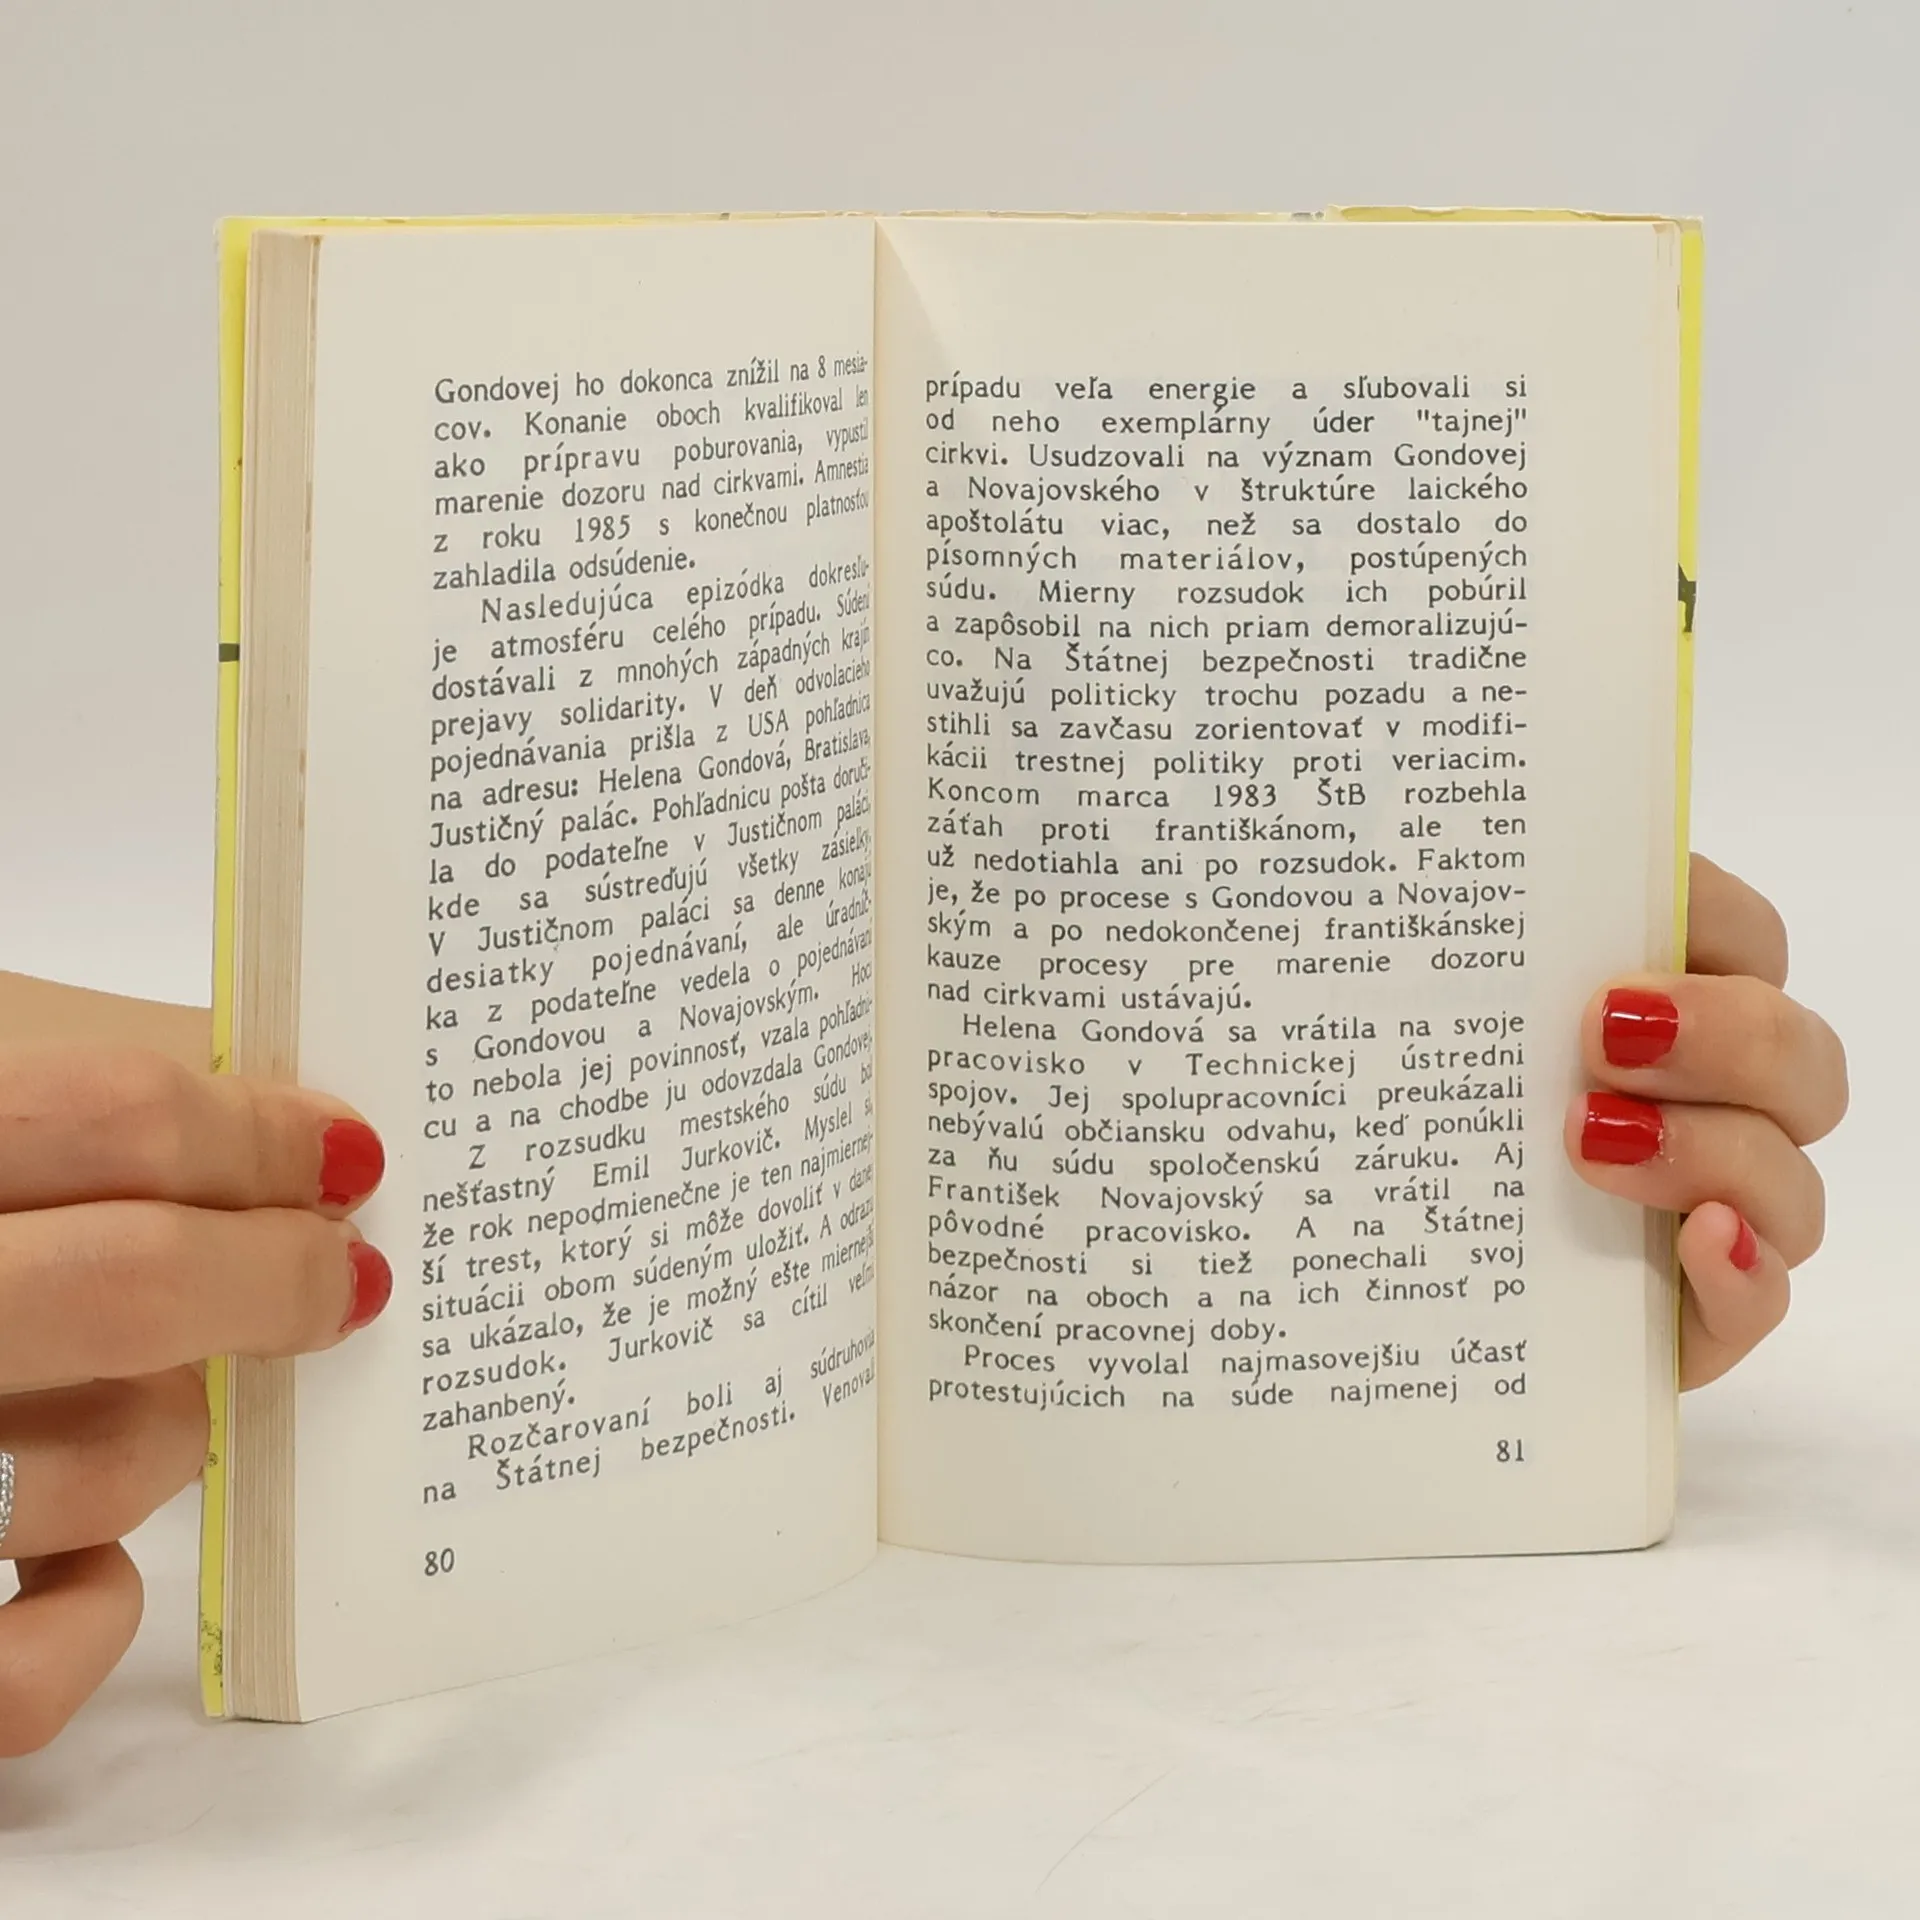 Gondovej ho dokonca znížil na 8 mesia-
cov. Konanie oboch kvalifikoval len
ako prípravu poburovania, vypustil
marenie dozoru nad cirkvami. Amnestia
z roku 1985 s konečnou platnosťou
zahladila odsúdenie.
Nasledujúca epizódka dokresľu-
je atmosféru celého prípadu. Súdení
dostávali z mnohých západných krajín
prejavy solidarity. V deň odvolacieho
pojednávania prišla z USA pohľadnica
na adresu: Helena Gondová, Bratislava,
Justičný palác. Pohľadnicu pošta doruči-
la do podateľne v Justičnom paláci,
kde sa sústreďujú všetky zásielky.
V Justičnom paláci sa denne konajú
desiatky pojednávaní, ale úradníč-
ka z podateľne vedela o pojednávaní
s Gondovou a Novajovským. Hoci
to nebola jej povinnosť, vzala pohľadni-
cu a na chodbe ju odovzdala Gondovej.
Z rozsudku mestského súdu bol
nešťastný Emil Jurkovič. Myslel si,
že rok nepodmienečne je ten najmiernej-
ší trest, ktorý si môže dovoliť v danej
situácii obom súdeným uložiť. A odrazu
sa ukázalo, že je možný ešte miernejší
rozsudok. Jurkovič sa cítil veľmi
zahanbený.
Rozčarovaní boli aj súdruhovia
na Štátnej bezpečnosti. Venovali
80
prípadu veľa energie a sľubovali si
od neho exemplárny úder "tajnej"
cirkvi. Usudzovali na význam Gondovej
a Novajovského v štruktúre laického
apoštolátu viac, než sa dostalo do
písomných materiálov, postúpených
súdu. Mierny rozsudok ich pobúril
a zapôsobil na nich priam demoralizujú-
co. Na Štátnej bezpečnosti tradične
uvažujú politicky trochu pozadu a ne-
stihli sa zavčasu zorientovať v modifi-
kácii trestnej politiky proti veriacim.
Koncom marca 1983 ŠtB rozbehla
záťah proti františkánom, ale ten
už nedotiahla ani po rozsudok. Faktom
je, že po procese s Gondovou a Novajov-
ským a po nedokončenej františkánskej
kauze procesy pre marenie dozoru
nad cirkvami ustávajú.
Helena Gondová sa vrátila na svoje
pracovisko v Technickej ústredni
spojov. Jej spolupracovníci preukázali
nebývalú občiansku odvahu, keď ponúkli
za ňu súdu spoločenskú záruku. Aj
František Novajovský sa vrátil na
pôvodné pracovisko. A na Štátnej
bezpečnosti si tiež ponechali svoj
názor na oboch a na ich činnosť po
skončení pracovnej doby.
Proces vyvolal najmasovejšiu účasť
protestujúcich na súde najmenej od
81